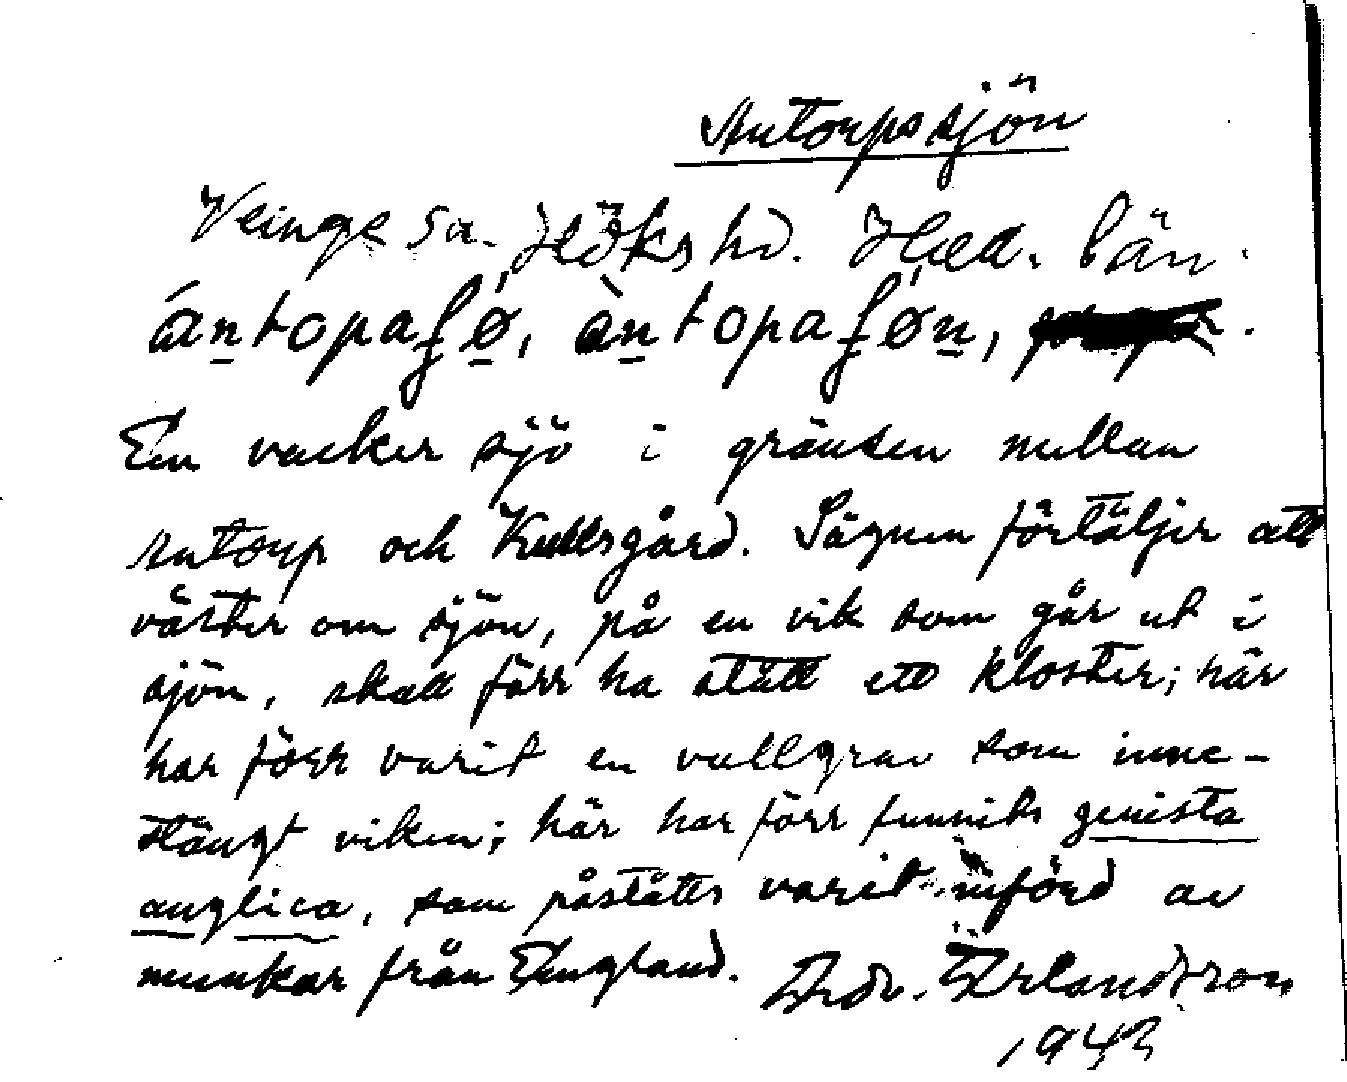 Antorpssjön
Veinge sn. Höks hd. Hall. län.
ántopaʃǿ, àntopaʃǿn,
En vacker sjö i gränsen mellan
Antorp och Kullsgård. Sägnen förtäljer att
väster om sjön, på en vik som går ut i
sjön, skall förr ha stått ett kloster; här
har förr varit en vallgrav som inne-
stängt viken; här har förr funnits genista
anglica, som påståtts varit införd av
munkar från England. Andr. Erlandsson
1943